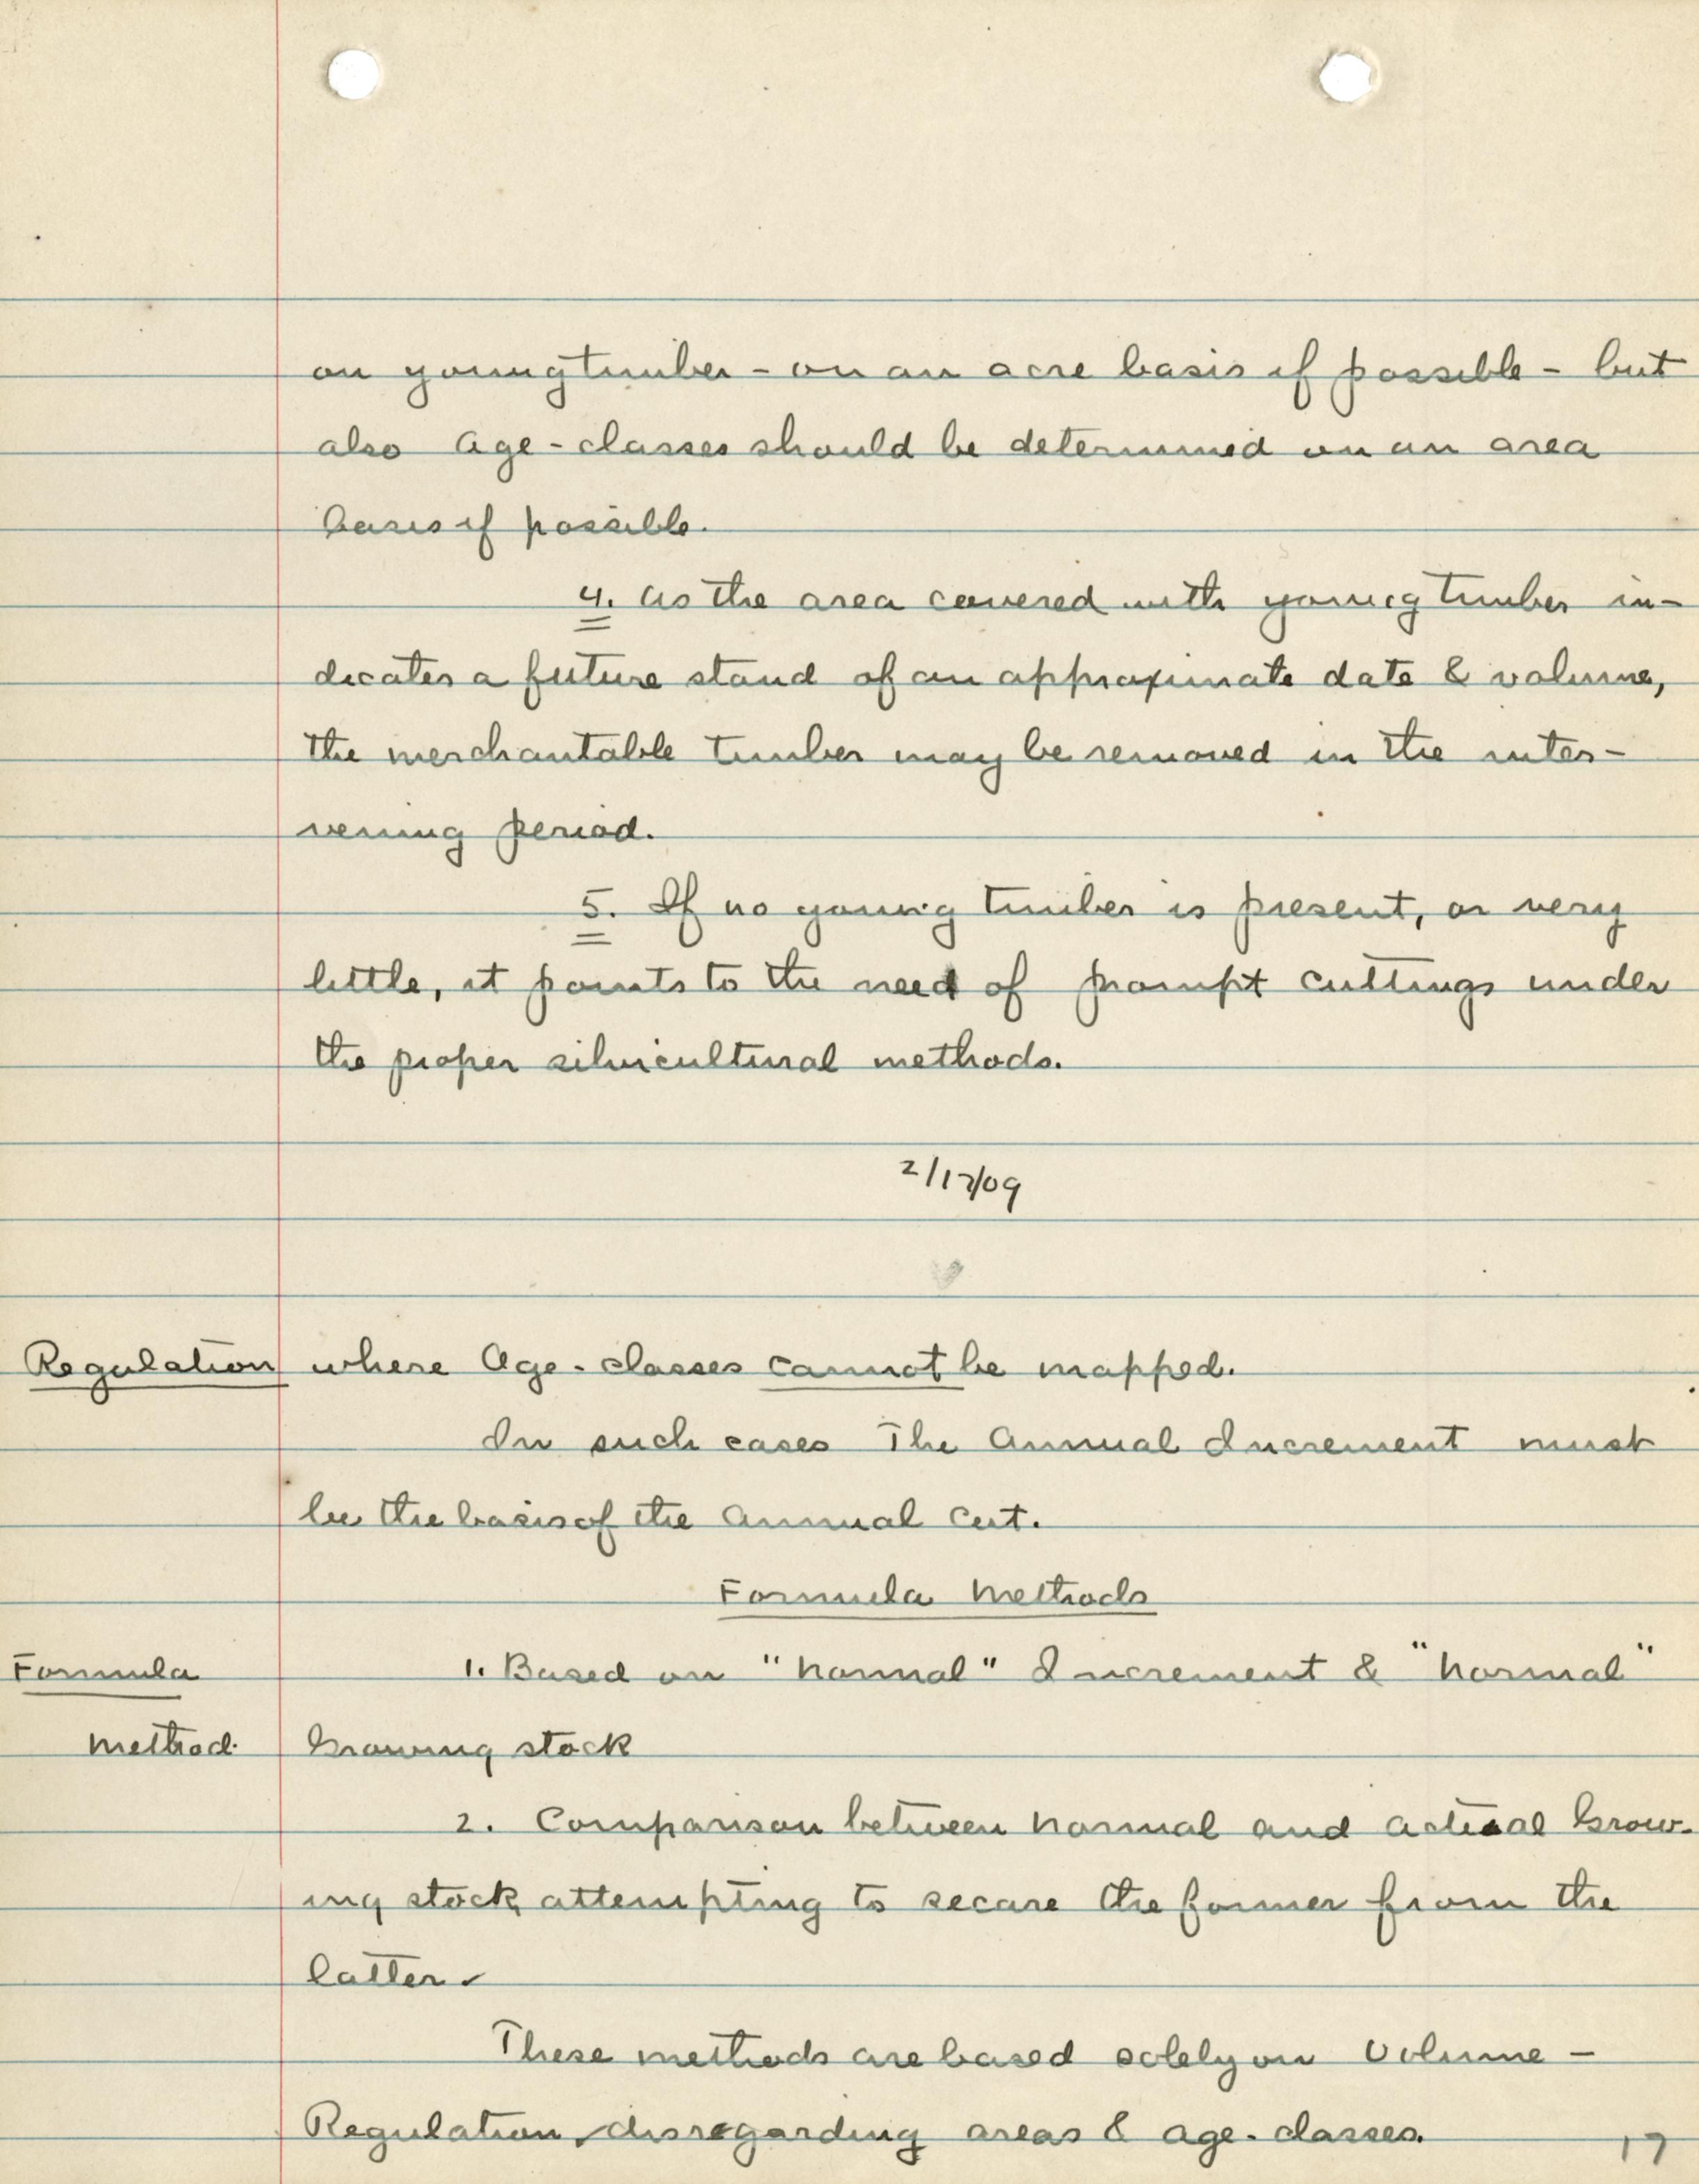 on young timber - on an acre basis if possible - but
also Age-classes should be determined on an area
basis if possible.
4. As the area covered with young timber in-
dicates a future stand of an approximate date & volume,
the merchantable timber may be removed in the inter-
vening period.
5. If no young timber is present, or very
little, it points to the need of prompt cuttings under
the proper silvicultural methods.
2/17/09
Regulation where Age-classes cannot be mapped.
In such cases The Annual Increment must
be the basis of the Annual Cut.
Formula Methods
Formula 1. Based on "Normal" Increment & "Normal"
Method Growing stock
2. Comparison between Normal and Actual Grow-
ing stock, attempting to secure the former from the
latter.
These methods are based solely on Volume -
Regulation, disregarding areas & age-classes.
17